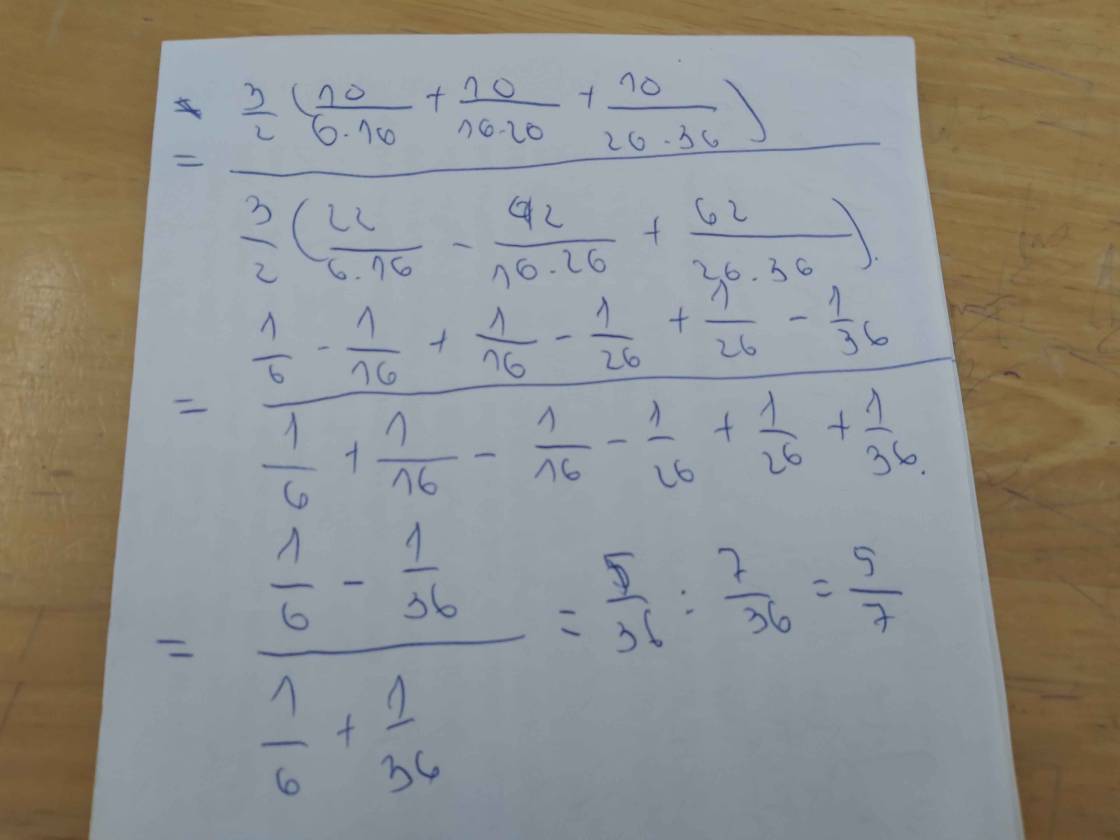 = \frac{\frac{3}{2}\left(\frac{10}{6.16} + \frac{10}{16.26} + \frac{10}{26.36}\right)}{\frac{3}{2}\left(\frac{22}{6.16} - \frac{42}{16.26} + \frac{62}{26.36}\right)}
= \frac{\frac{1}{6} - \frac{1}{16} + \frac{1}{16} - \frac{1}{26} + \frac{1}{26} - \frac{1}{36}}{\frac{1}{6} + \frac{1}{16} - \frac{1}{16} - \frac{1}{26} + \frac{1}{26} + \frac{1}{36}}.
= \frac{\frac{1}{6} - \frac{1}{36}}{\frac{1}{6} + \frac{1}{36}} = \frac{5}{36} : \frac{7}{36} = \frac{5}{7}